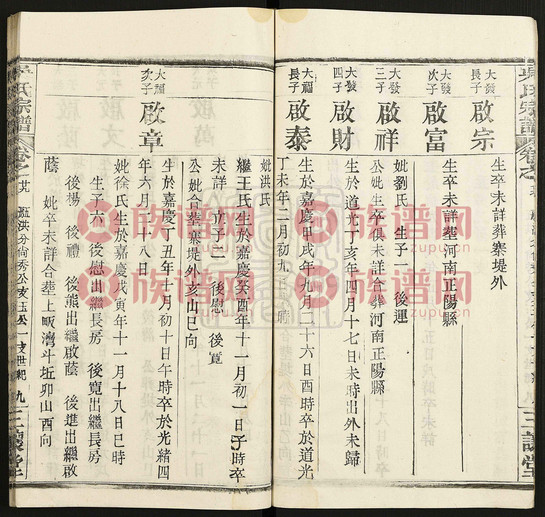 吳氏宗譜
大發
長子
啟宗
生卒未詳葬寨堤外
大發
次子
啟富
生卒未詳葬河南正陽縣
大發
三子
啟祥
妣劉氏 生子一 後運
公妣生卒俱未詳合葬河南正陽縣
大發
四子
啟財
生於道光丁亥年四月十七日未時出外未歸
大福
長子
啟泰
生於嘉慶甲戌年九月二十六日酉時卒於道光
丁未年二月初九日
妣洪氏
繼王氏生於嘉慶癸酉年十一月初一日子時卒
未詳 立子二 後慰 後寬
公妣合葬寨堤外亥山巳向
大福
次子
啟章
生於嘉慶丁丑年十月初十日午時卒於光緒四
年六月二十八日
妣徐氏生於嘉慶戊寅年十一月十八日巳時
生子六 後慰出繼長房 後寬出繼長房
後楊 後禮 後熊出繼啟蔭 後進出繼啟
蔭 妣卒未詳合葬上畈灣斗坵卯山酉向
吳氏宗譜
三讓堂
族譜网